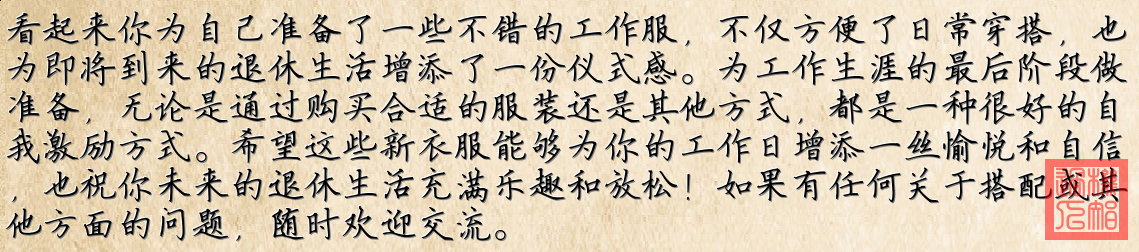 看起来你为自己准备了一些不错的工作服，不仅方便了日常穿搭，也
为即将到来的退休生活增添了一份仪式感。为工作生涯的最后阶段做
准备，无论是通过购买合适的服装还是其他方式，都是一种很好的自
我激励方式。希望这些新衣服能够为你的工作日增添一丝愉悦和自信
，也祝你未来的退休生活充满乐趣和放松！如果有任何关于搭配或其
他方面的问题，随时欢迎交流。